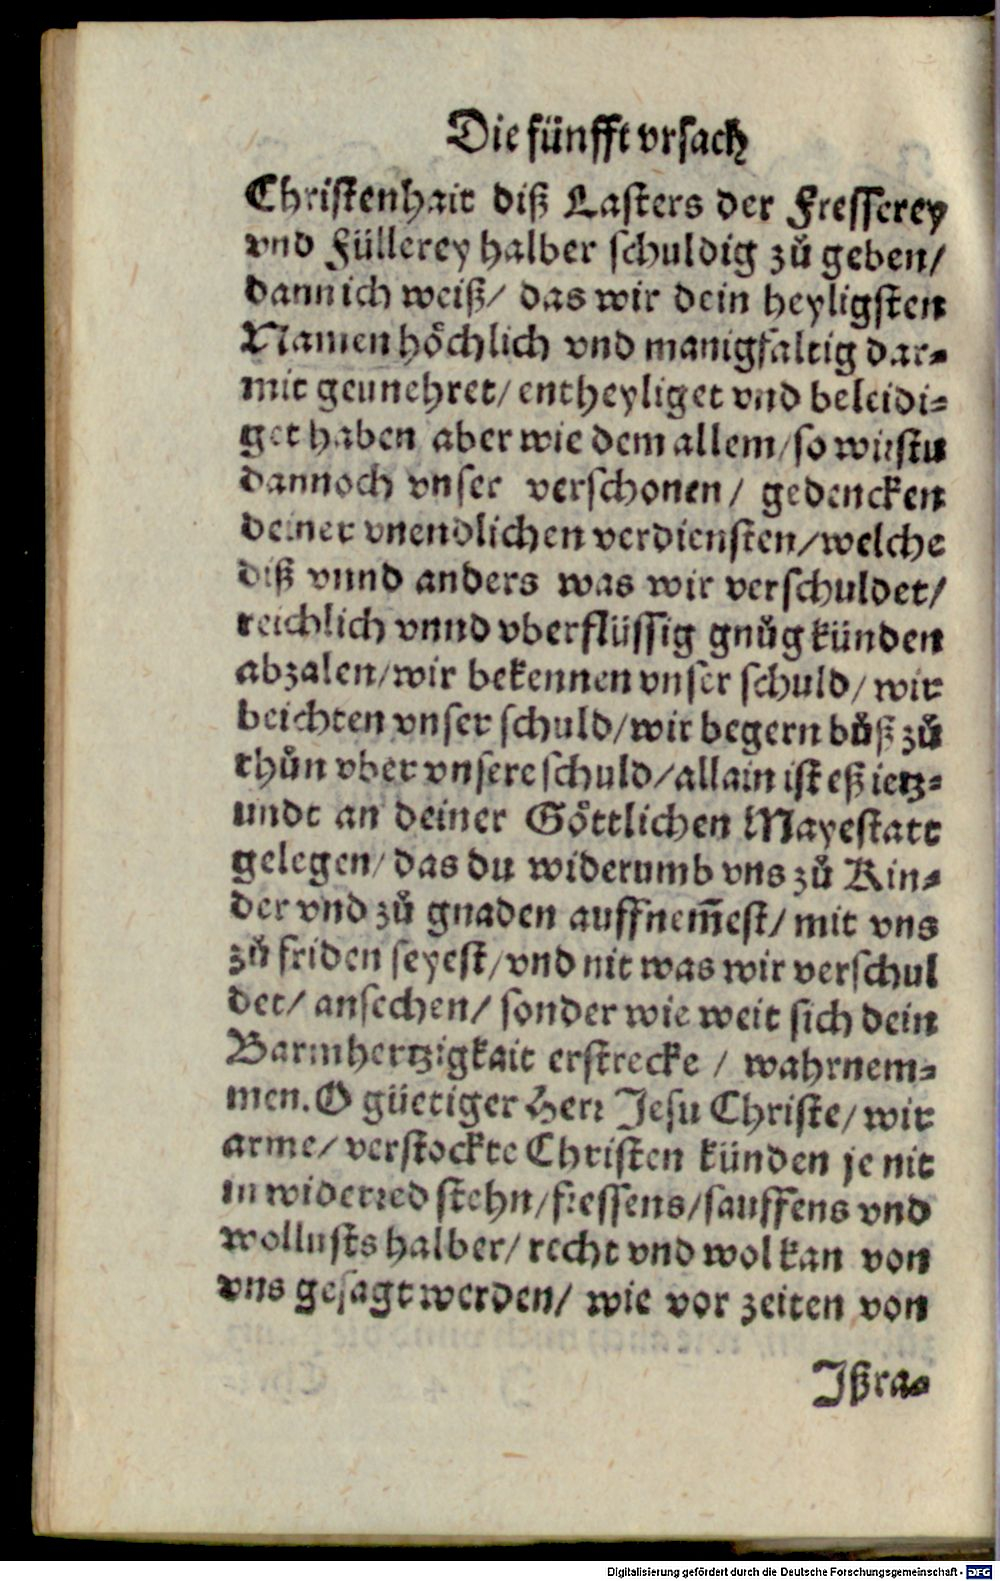 Die fünfft vrsach
Christenhait diß Lasters der Fresserey
vnd Füllerey halber schuldig zů geben/
dann ich weiß/ das wir dein heyligsten
Namen höchlich vnd manigfaltig dar-
mit geunehret/ entheyliget vnd beleidi-
get haben aber wie dem allem/ so wirstu
dannoch vnser verschonen/ gedencken
deiner vnendlichen verdiensten/ welche
diß vnnd anders was wir verschuldet/
reichlich vnnd vberflüssig gnůg künden
abzalen/ wir bekennen vnser schuld/ wir
beichten vnser schuld/ wir begern bůß zů
thůn vber vnsere schuld/ allain ist eß ietz-
undt an deiner Göttlichen Mayestatt
gelegen/ das du widerumb vns zů Kin-
der vnd zů gnaden auffnem̃est/ mit vns
zů friden seyest/ vnd nit was wir verschul
det/ ansechen/ sonder wie weit sich dein
Barmhertzigkait erstrecke / wahrnem-
men. O güetiger Herr Jesu Christe/ wir
arme/ verstockte Christen künden je nit
in widerred stehn/ fressens/ sauffens vnd
wollusts halber/ recht vnd wol kan von
vns gesagt werden/ wie vor zeiten von
Jßra-
Digitalisierung gefördert durch die Deutsche Forschungsgemeinschaft - DFG